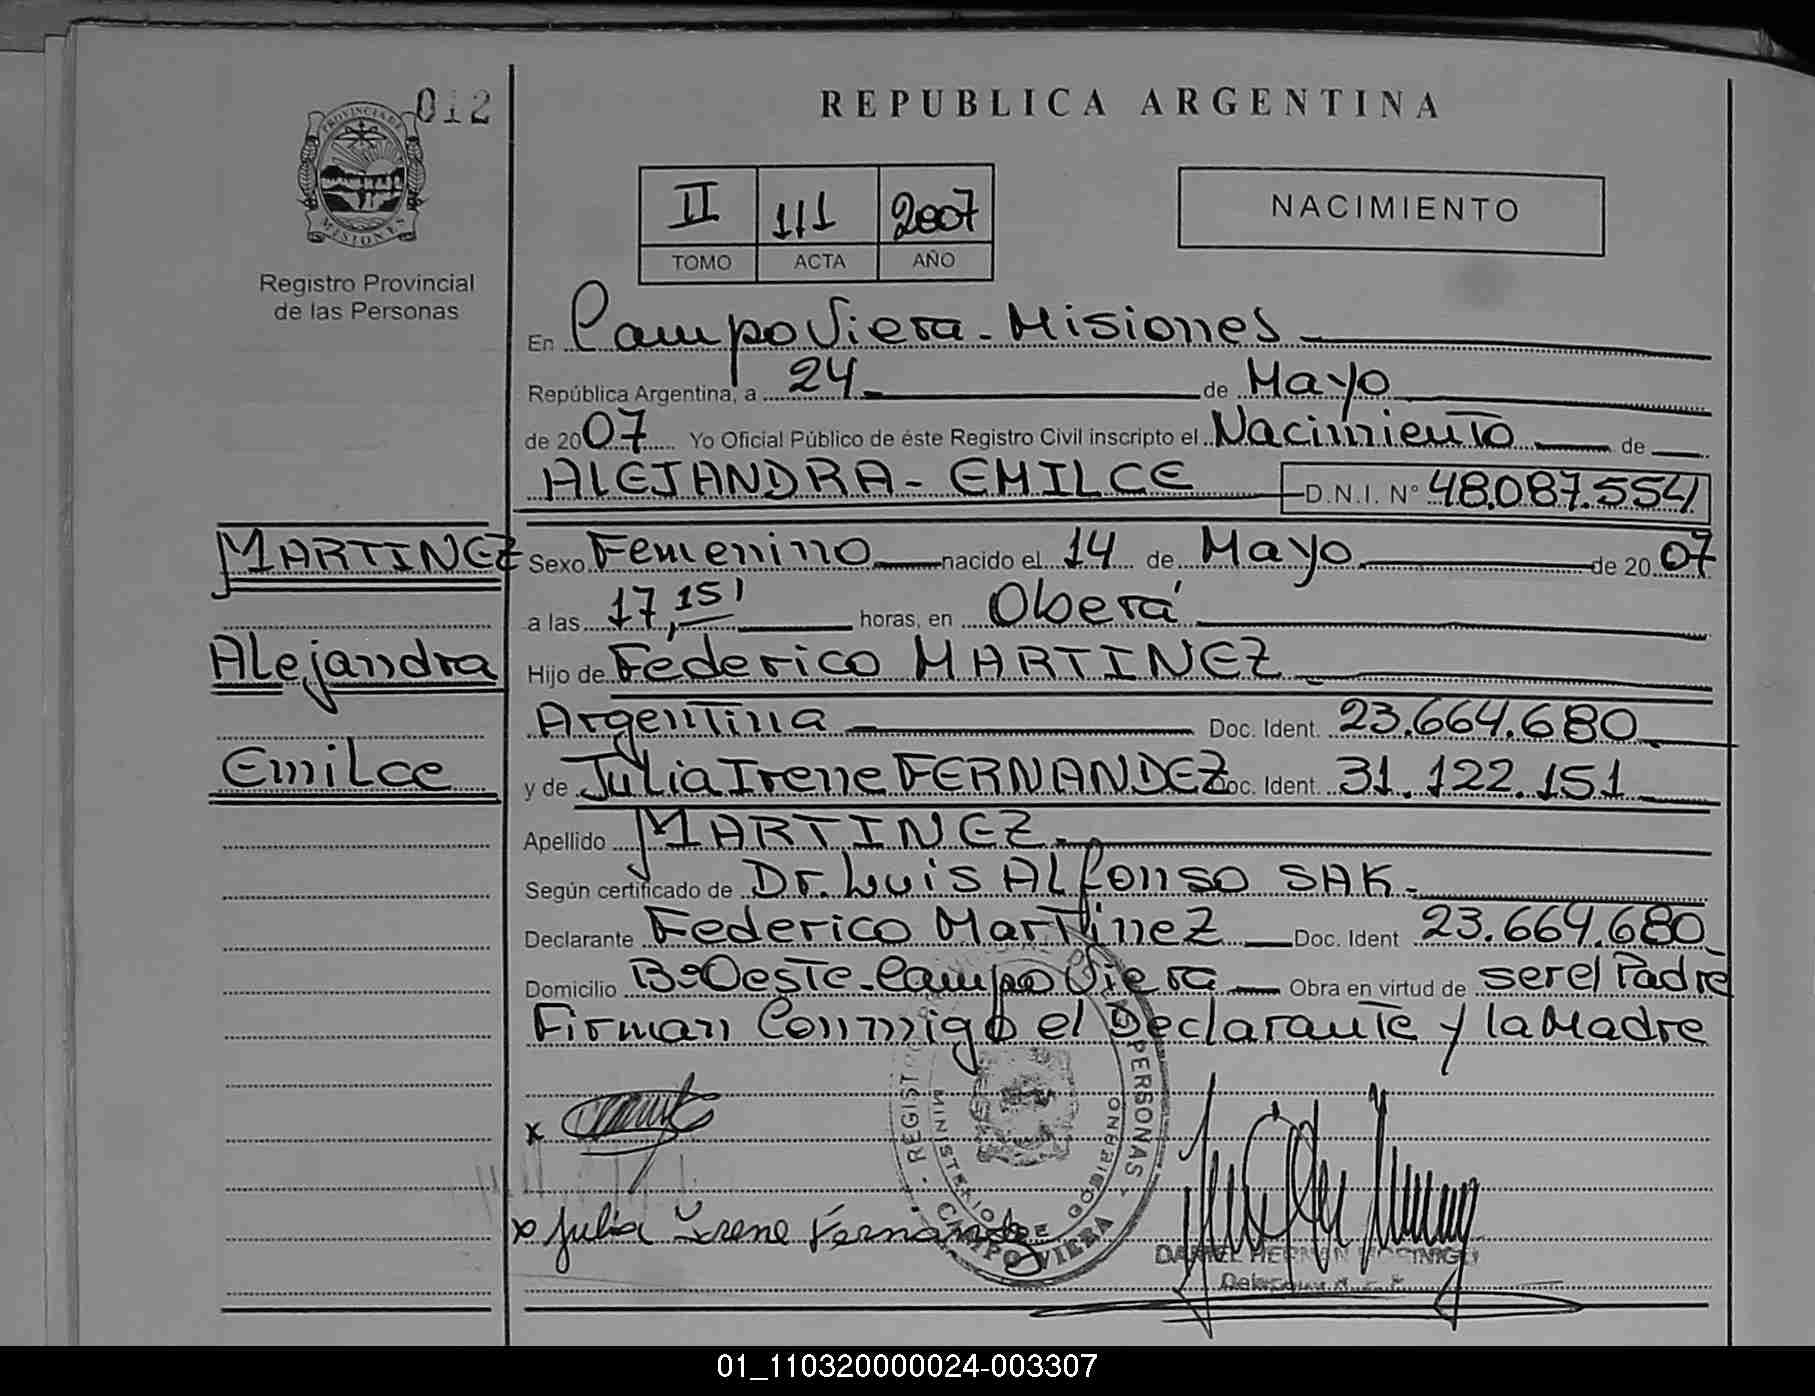 012
PROVINCIA DE
MISIONES
Registro Provincial
de las Personas
REPUBLICA ARGENTINA
II 111 2007
TOMO ACTA AÑO
NACIMIENTO
En Campo Viera - Misiones
República Argentina, a 24 de Mayo
de 2007 Yo Oficial Público de éste Registro Civil inscripto el Nacimiento de
ALEJANDRA - EMILCE D.N.I. N° 48.087.554
MARTINEZ
Alejandra
Emilce
Sexo Femenino nacido el 14 de Mayo de 2007
a las 17,15' horas, en Oberá
Hijo de Federico MARTINEZ
Argentina Doc. Ident. 23.664.680
y de Julia Irene FERNANDEZ Doc. Ident. 31.122.151
Apellido MARTINEZ.
Según certificado de Dr. Luis Alfonso SAK.
Declarante Federico Martinez Doc. Ident 23.664.680
Domicilio B° Oeste - Campo Viera Obra en virtud de ser el Padre
Firman Conmigo el Declarante y la Madre
x
x Julia Irene Fernandez
REGISTRO PERSONAS - CAMPO VIERA -
MINISTERIO DE GOBIERNO
DANIEL HERNAN
01_110320000024-003307